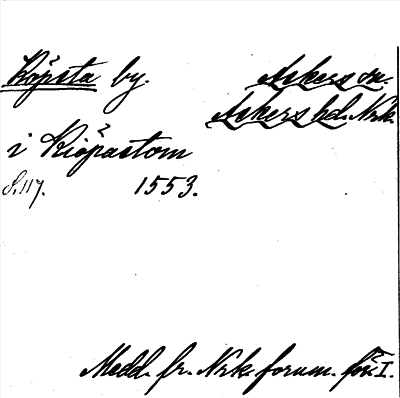 Köpsta by. Askers sn.
Askers hd. Nrk.
i Kiöpastom
S. 117. 1553.
Medd. fr. Nrk. fornm. för. I.